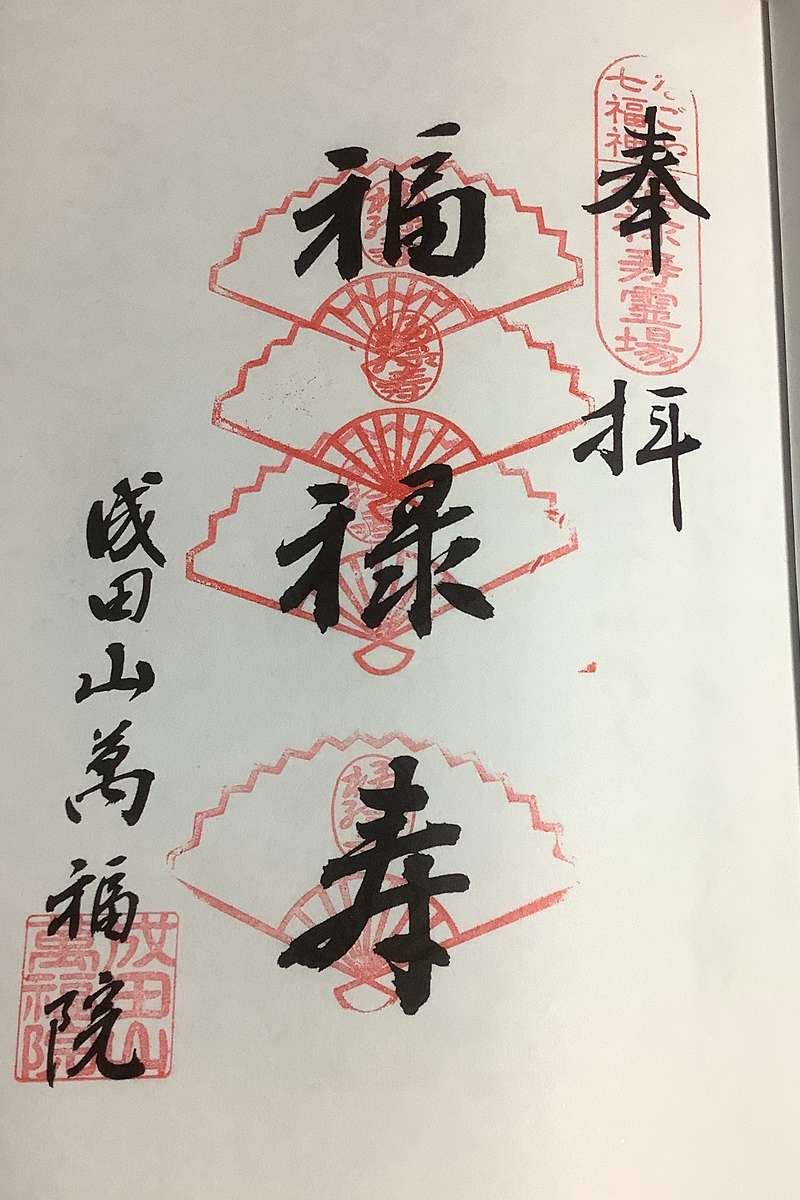 奉拝
なごや
七福神
福禄寿霊場
福禄寿
成田山萬福院
成田山
萬福院